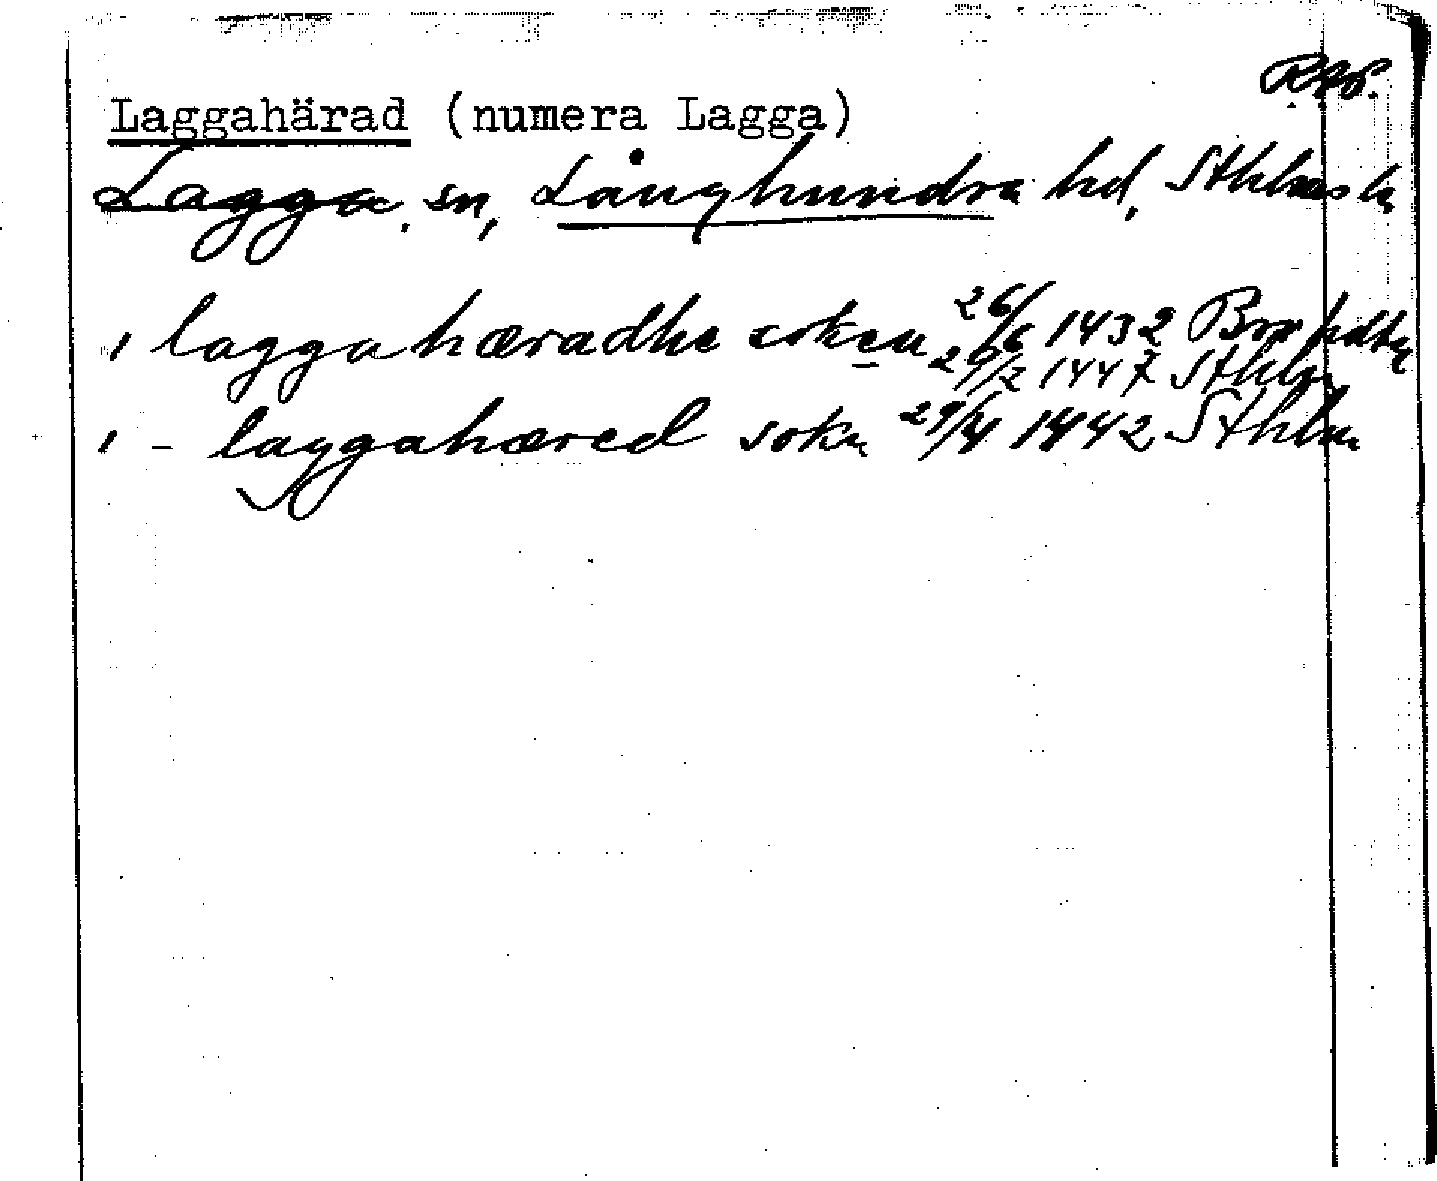 Rep.
Laggahärad (numera Lagga)
Lagga sn, Långhundra hd, Sthlms l.
i laggahæradhe soken 26/6 1432
20/2 1447 Sthlm
i - laggahæred sokn 29/4 1442 Sthlm